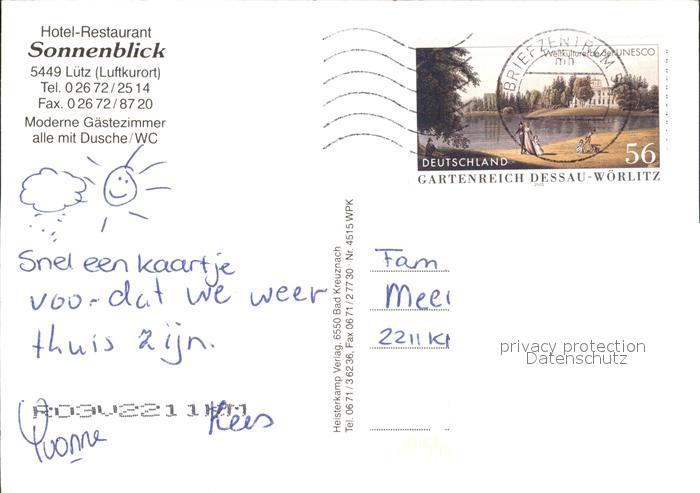 Hotel-Restaurant
Sonnenblick
5449 Lütz (Luftkurort)
Tel. 0 26 72 / 25 14
Fax. 0 26 72 / 87 20
Moderne Gästezimmer
alle mit Dusche/WC
BRIEFZENTRUM
Weltkulturerbe der UNESCO
DEUTSCHLAND
56
GARTENREICH DESSAU-WÖRLITZ
2002
Snel een kaartje
voo-dat we weer
thuis zijn.
Yvonne
Kees
Heisterkamp Verlag, 6550 Bad Kreuznach
Tel. 06 71 / 3 62 36, Fax 06 71 / 2 77 30 Nr. 4515 WPK
Fam
Meei
2211 K
privacy protection
Datenschutz